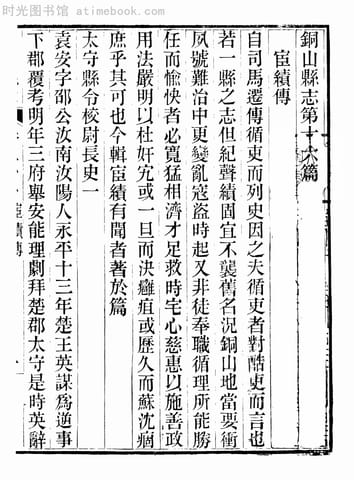 时光图书馆 - atimebook.com
銅山縣志第十六篇
宦績傳
自司馬遷傳循吏而列史因之夫循吏者對酷吏而言也
若一縣之志但紀聲績固宜不襲舊名況銅山地當要衝
夙號難治中更變亂寇盜時起又非徒奉職循理所能勝
任而愉快者必寬猛相濟才足救時宅心慈惠以施善政
用法嚴明以杜奸宄或一旦而決癰疽或歷久而蘇沈痼
庶乎其可也今輯宦績有聞者著於篇
太守縣令校尉長史一
袁安字邵公汝南汝陽人永平十三年楚王英謀為逆事
下郡覆考明年三府舉安能理劇拜楚郡太守是時英辭